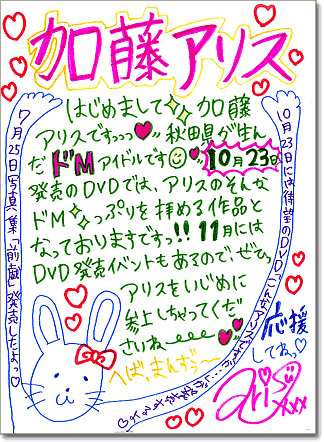 加藤アリス
はじめまして 加藤
アリスですっっ 秋田県が生ん
だ ドMアイドルです 10月23日
発売のDVDでは、アリスのそんな
ドM っぷりを拝める作品と
なっておりますですっ!! 11月には
DVD発売イベントもあるので、ぜひ
アリスをいじめに
参上しちゃってくだ
さいねー
へば、まんずっ〜
7月25日写真集「前戯」発売したよっ
10月23日には待望のDVD
応援
してねっ
Aris xxx